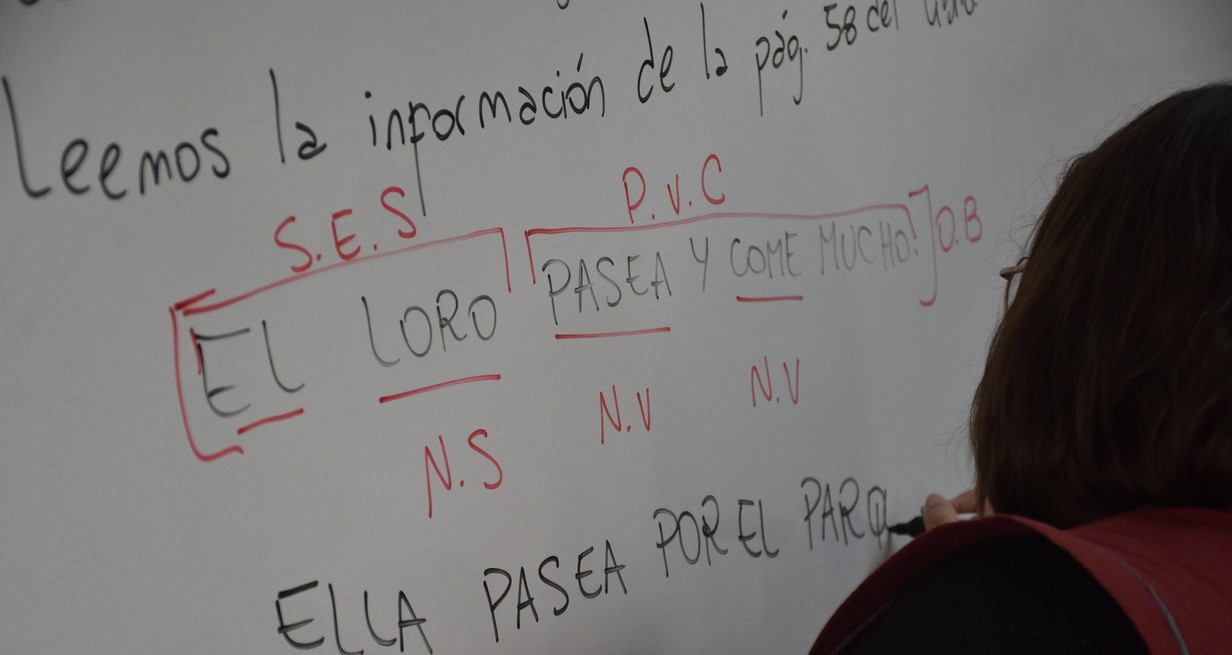 Leemos la información de la pág. 58 del
S.E.S P.V.C
EL LORO PASEA Y COME MUCHO. O.B
N.S N.V N.V
ELLA PASEA POR EL PARQ